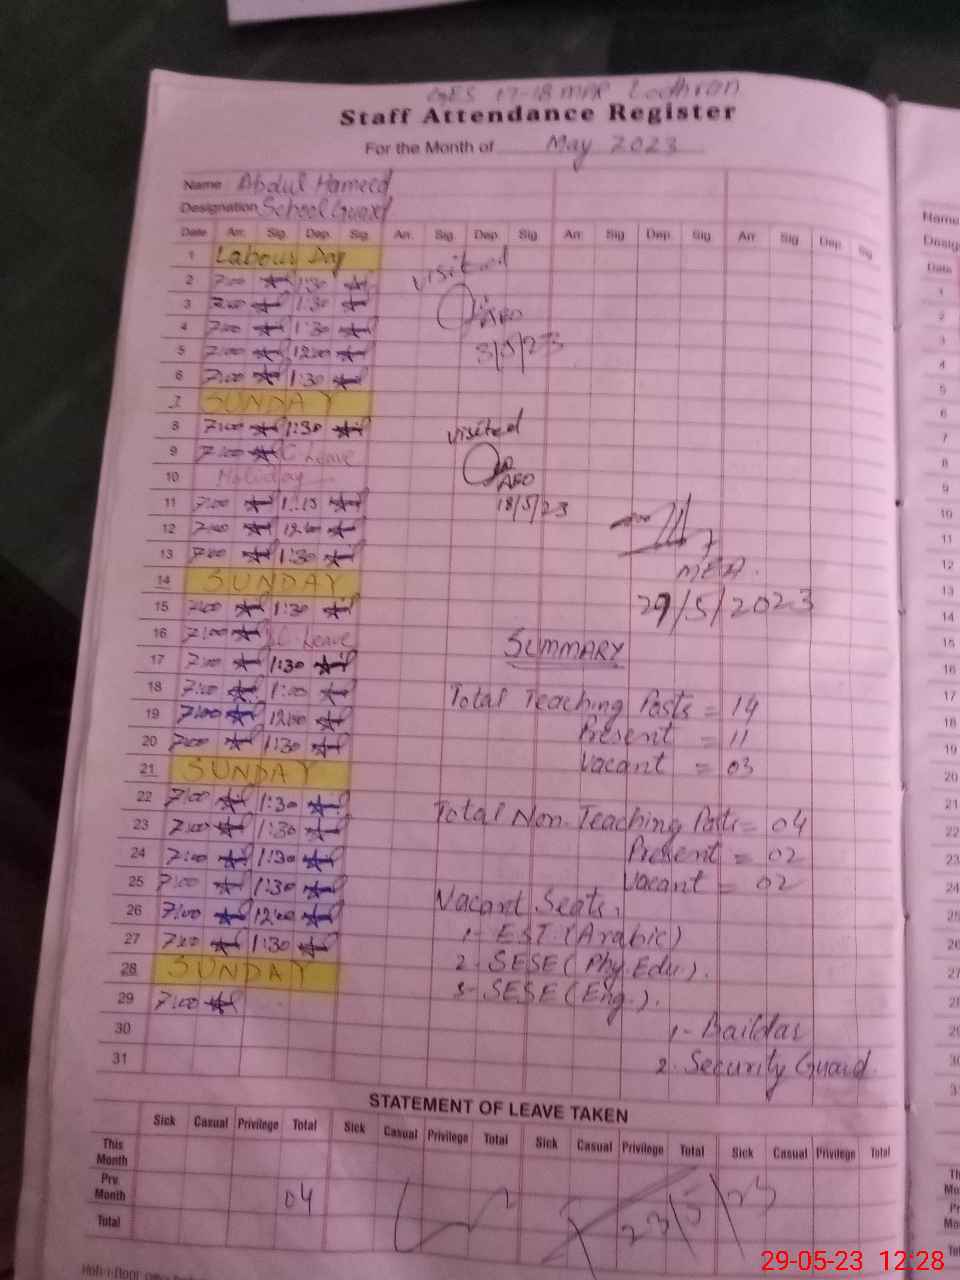 GES 17-18 MPR Lodhran
Staff Attendance Register
For the Month of May 2023
Name Abdul Hameed
Designation School Guard
Date Arr. Sig. Dep. Sig. Arr. Sig. Dep. Sig. Arr. Sig. Dep. Sig. Arr. Sig. Dep. Sig.
1 Labour Day
2 7:00 1:30
3 7:00 1:30
4 7:00 1:30
5 7:00 12:00
6 7:00 1:30
7 SUNDAY
8 7:00 1:30
9 7:00 C-Leave
10 Holiday
11 7:00 1:15
12 7:00 12:00
13 7:00 1:30
14 SUNDAY
15 7:00 1:30
16 7:00 C-Leave
17 7:00 1:30
18 7:00 1:00
19 7:00 12:00
20 7:00 1:30
21 SUNDAY
22 7:00 1:30
23 7:00 1:30
24 7:00 1:30
25 7:00 1:30
26 7:00 12:00
27 7:00 1:30
28 SUNDAY
29 7:00
30
31
visited
AEO
3/5/23
visited
AEO
18/5/23
MEA.
29/5/2023
SUMMARY
Total Teaching Posts = 14
Present = 11
Vacant = 03
Total Non-Teaching Posts = 04
Present = 02
Vacant = 02
Vacant Seats,
1- EST (Arabic)
2- SESE (Phy. Edu).
3- SESE (Eng.).
1- Baildar
2. Security Guard.
STATEMENT OF LEAVE TAKEN
Sick Casual Privilege Total Sick Casual Privilege Total Sick Casual Privilege Total Sick Casual Privilege Total
This Month
Prv. Month 04
Total
Name
Date
1
2
3
4
5
6
7
8
9
10
11
12
13
14
15
16
17
18
19
20
21
22
23
24
25
26
27
28
29-05-23 12:28